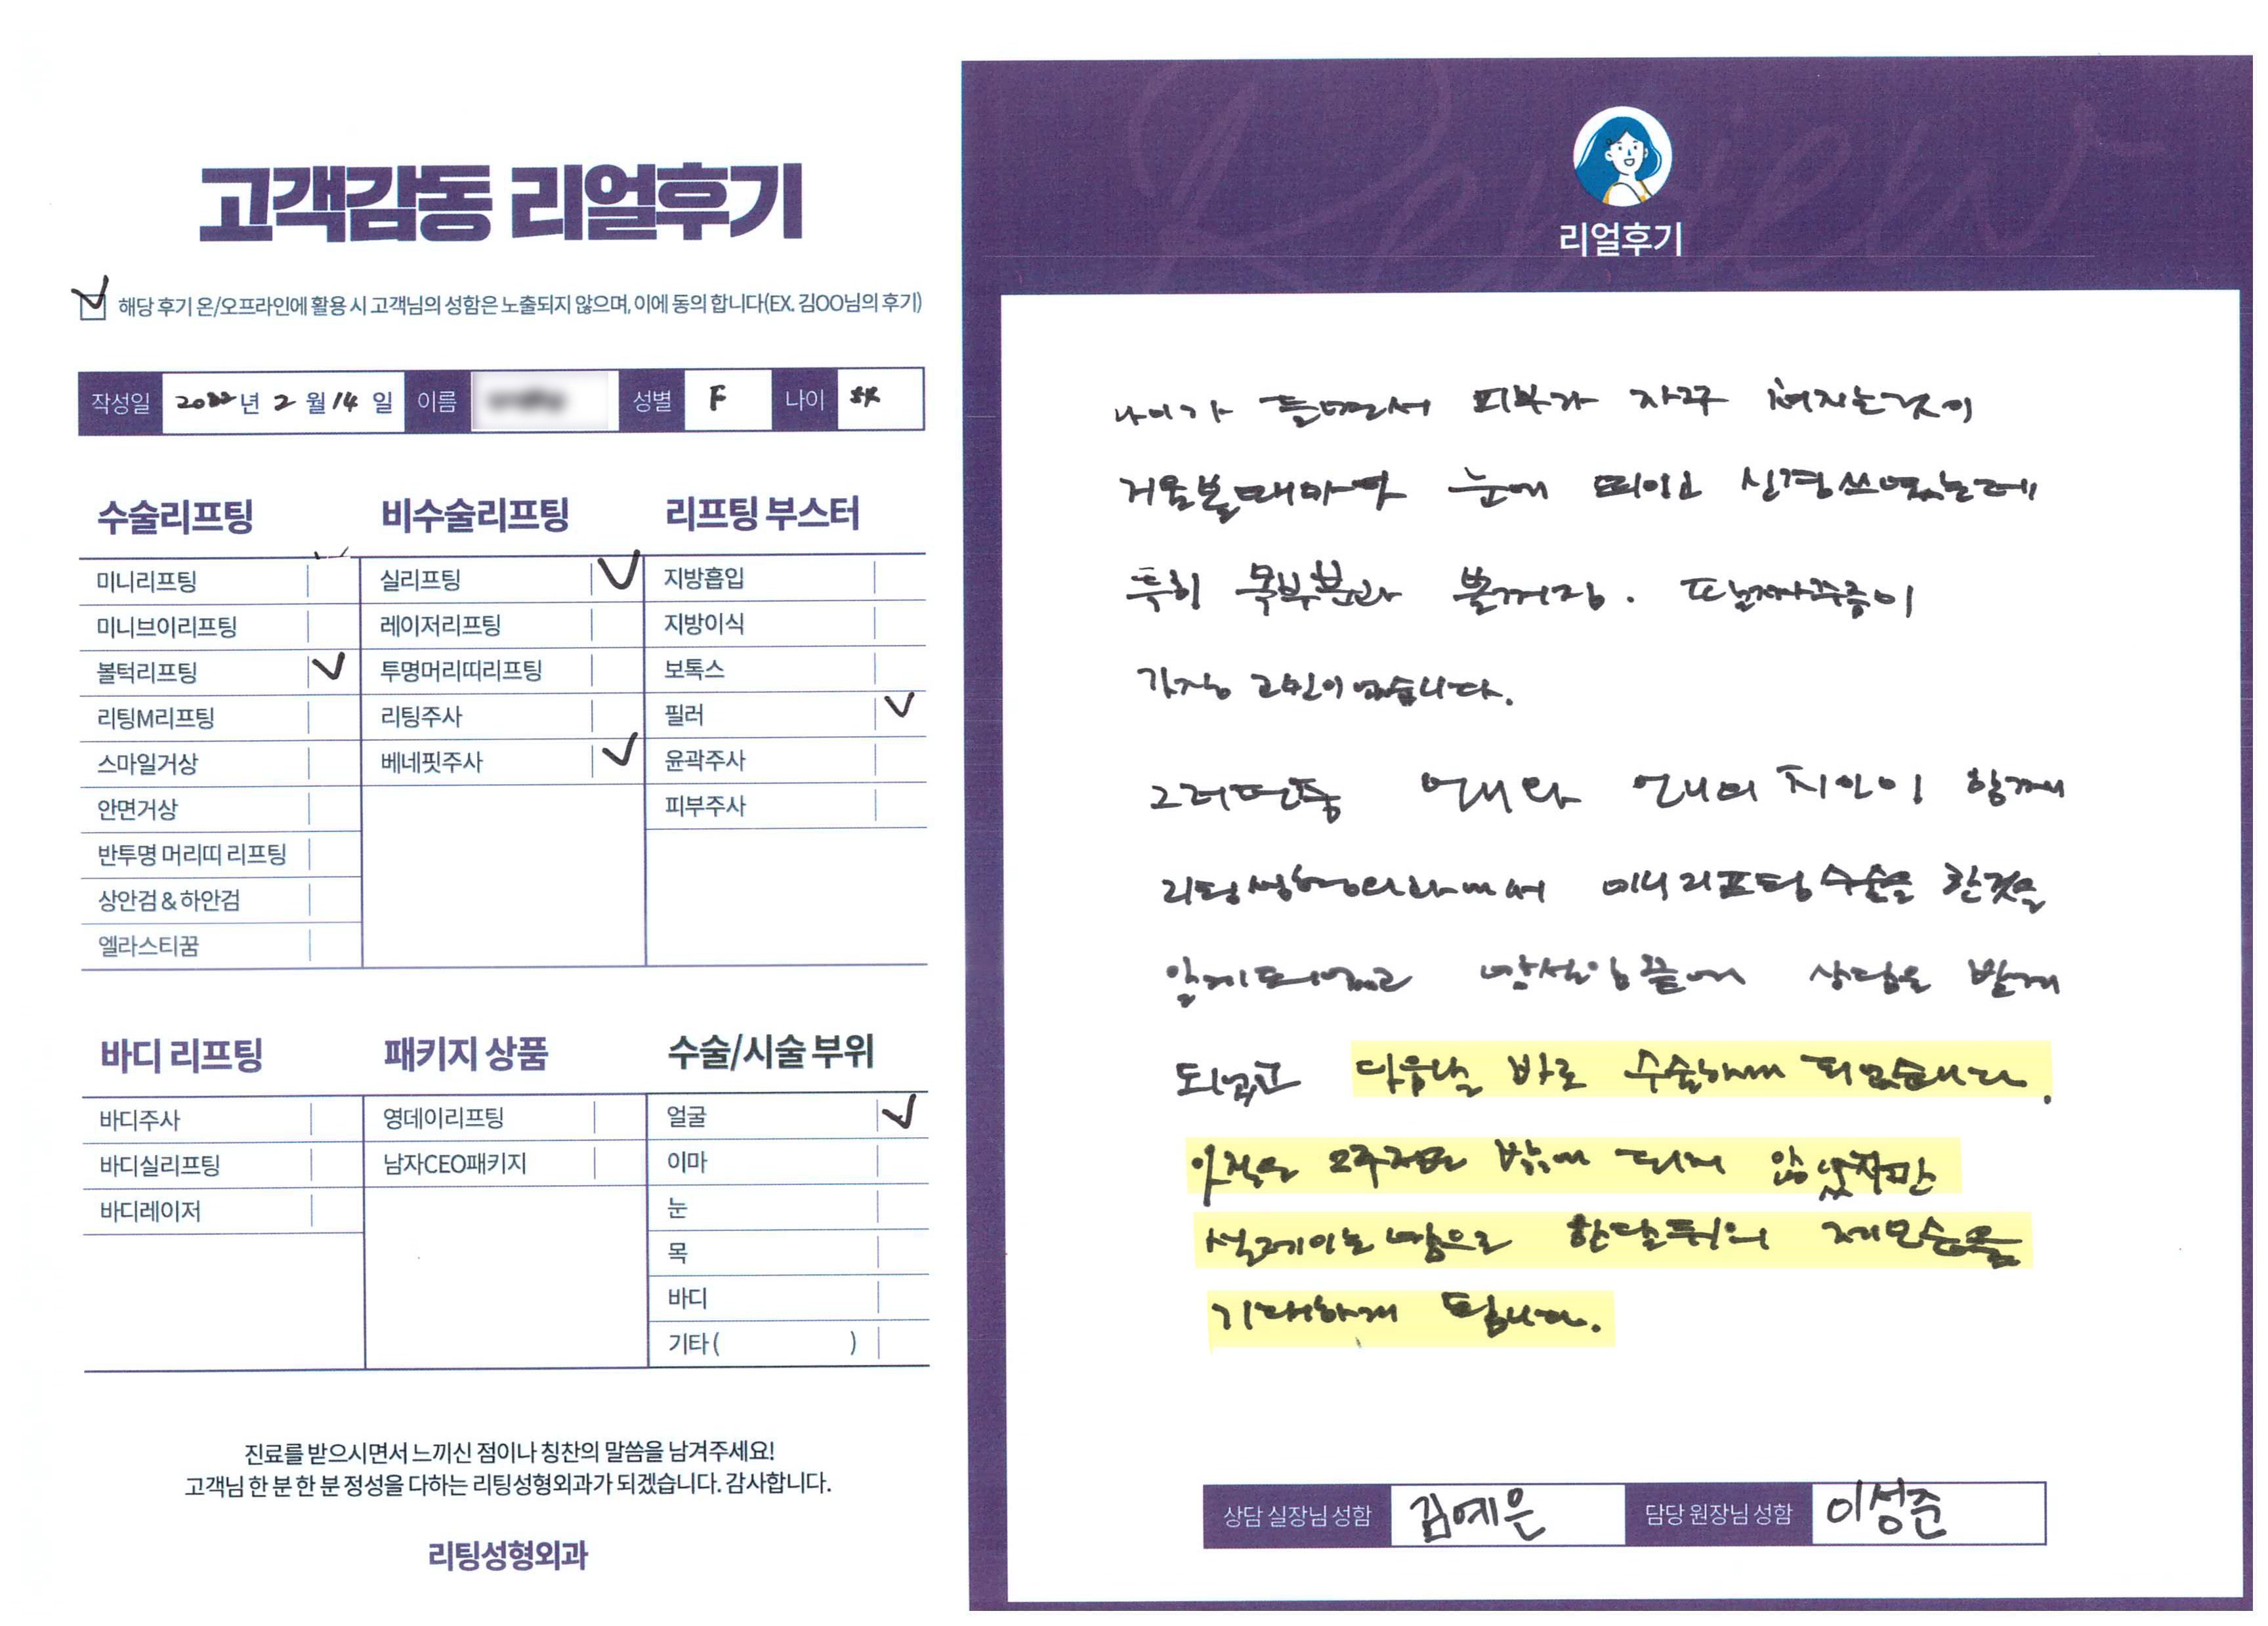 고객감동 리얼후기
해당 후기 온/오프라인에 활용 시 고객님의 성함은 노출되지 않으며, 이에 동의 합니다(EX. 김OO님의 후기)
작성일 2022년 2월 14일 이름 성별 F 나이
수술리프팅
미니리프팅
미니브이리프팅
볼턱리프팅
리팅M리프팅
스마일거상
안면거상
반투명 머리띠 리프팅
상안검 & 하안검
엘라스티꿈
비수술리프팅
실리프팅
레이저리프팅
투명머리띠리프팅
리팅주사
베네핏주사
리프팅 부스터
지방흡입
지방이식
보톡스
필러
윤곽주사
피부주사
바디 리프팅
바디주사
바디실리프팅
바디레이저
패키지 상품
영데이리프팅
남자CEO패키지
수술/시술 부위
얼굴
이마
눈
목
바디
기타 ( )
진료를 받으시면서 느끼신 점이나 칭찬의 말씀을 남겨주세요!
고객님 한 분 한 분 정성을 다하는 리팅성형외과가 되겠습니다. 감사합니다.
리팅성형외과
Review
리얼후기
나이가 들면서 피부가 자꾸 쳐지는것이
거울볼때마다 눈에 띄이고 신경쓰였는데
특히 목부분과 볼꺼짐. 팔자주름이
가장 고민이였습니다.
그러던중 언니와 언니의 지인이 함께
리팅성형외과에서 미니리프팅수술을 한것을
알게되었고 망설임끝에 상담을 받게
되었고 다음날 바로 수술하게 되었습니다.
아직은 2주정도 밖에 되지 않았지만
설레이는 맘으로 한달뒤의 제모습을
기대하게 됩니다.
상담 실장님 성함 김예은 담당 원장님 성함 이성준